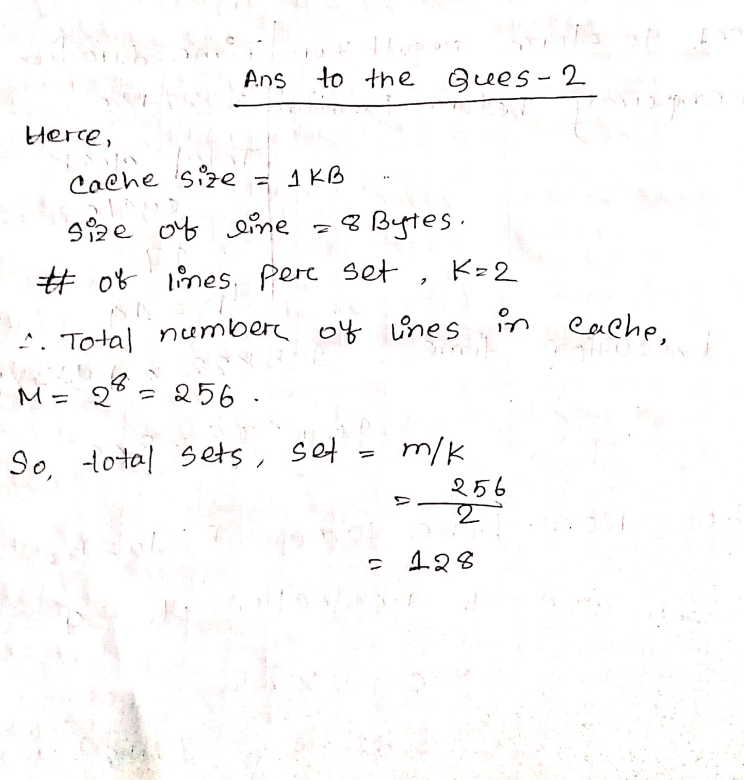 Ans to the Ques - 2
Here,
Cache size = 1 KB
size of line = 8 Bytes.
# of lines per set, K=2
∴ Total number of lines in cache,
M = 2⁸ = 256.
So, total sets, set = m/K
= 256/2
= 128